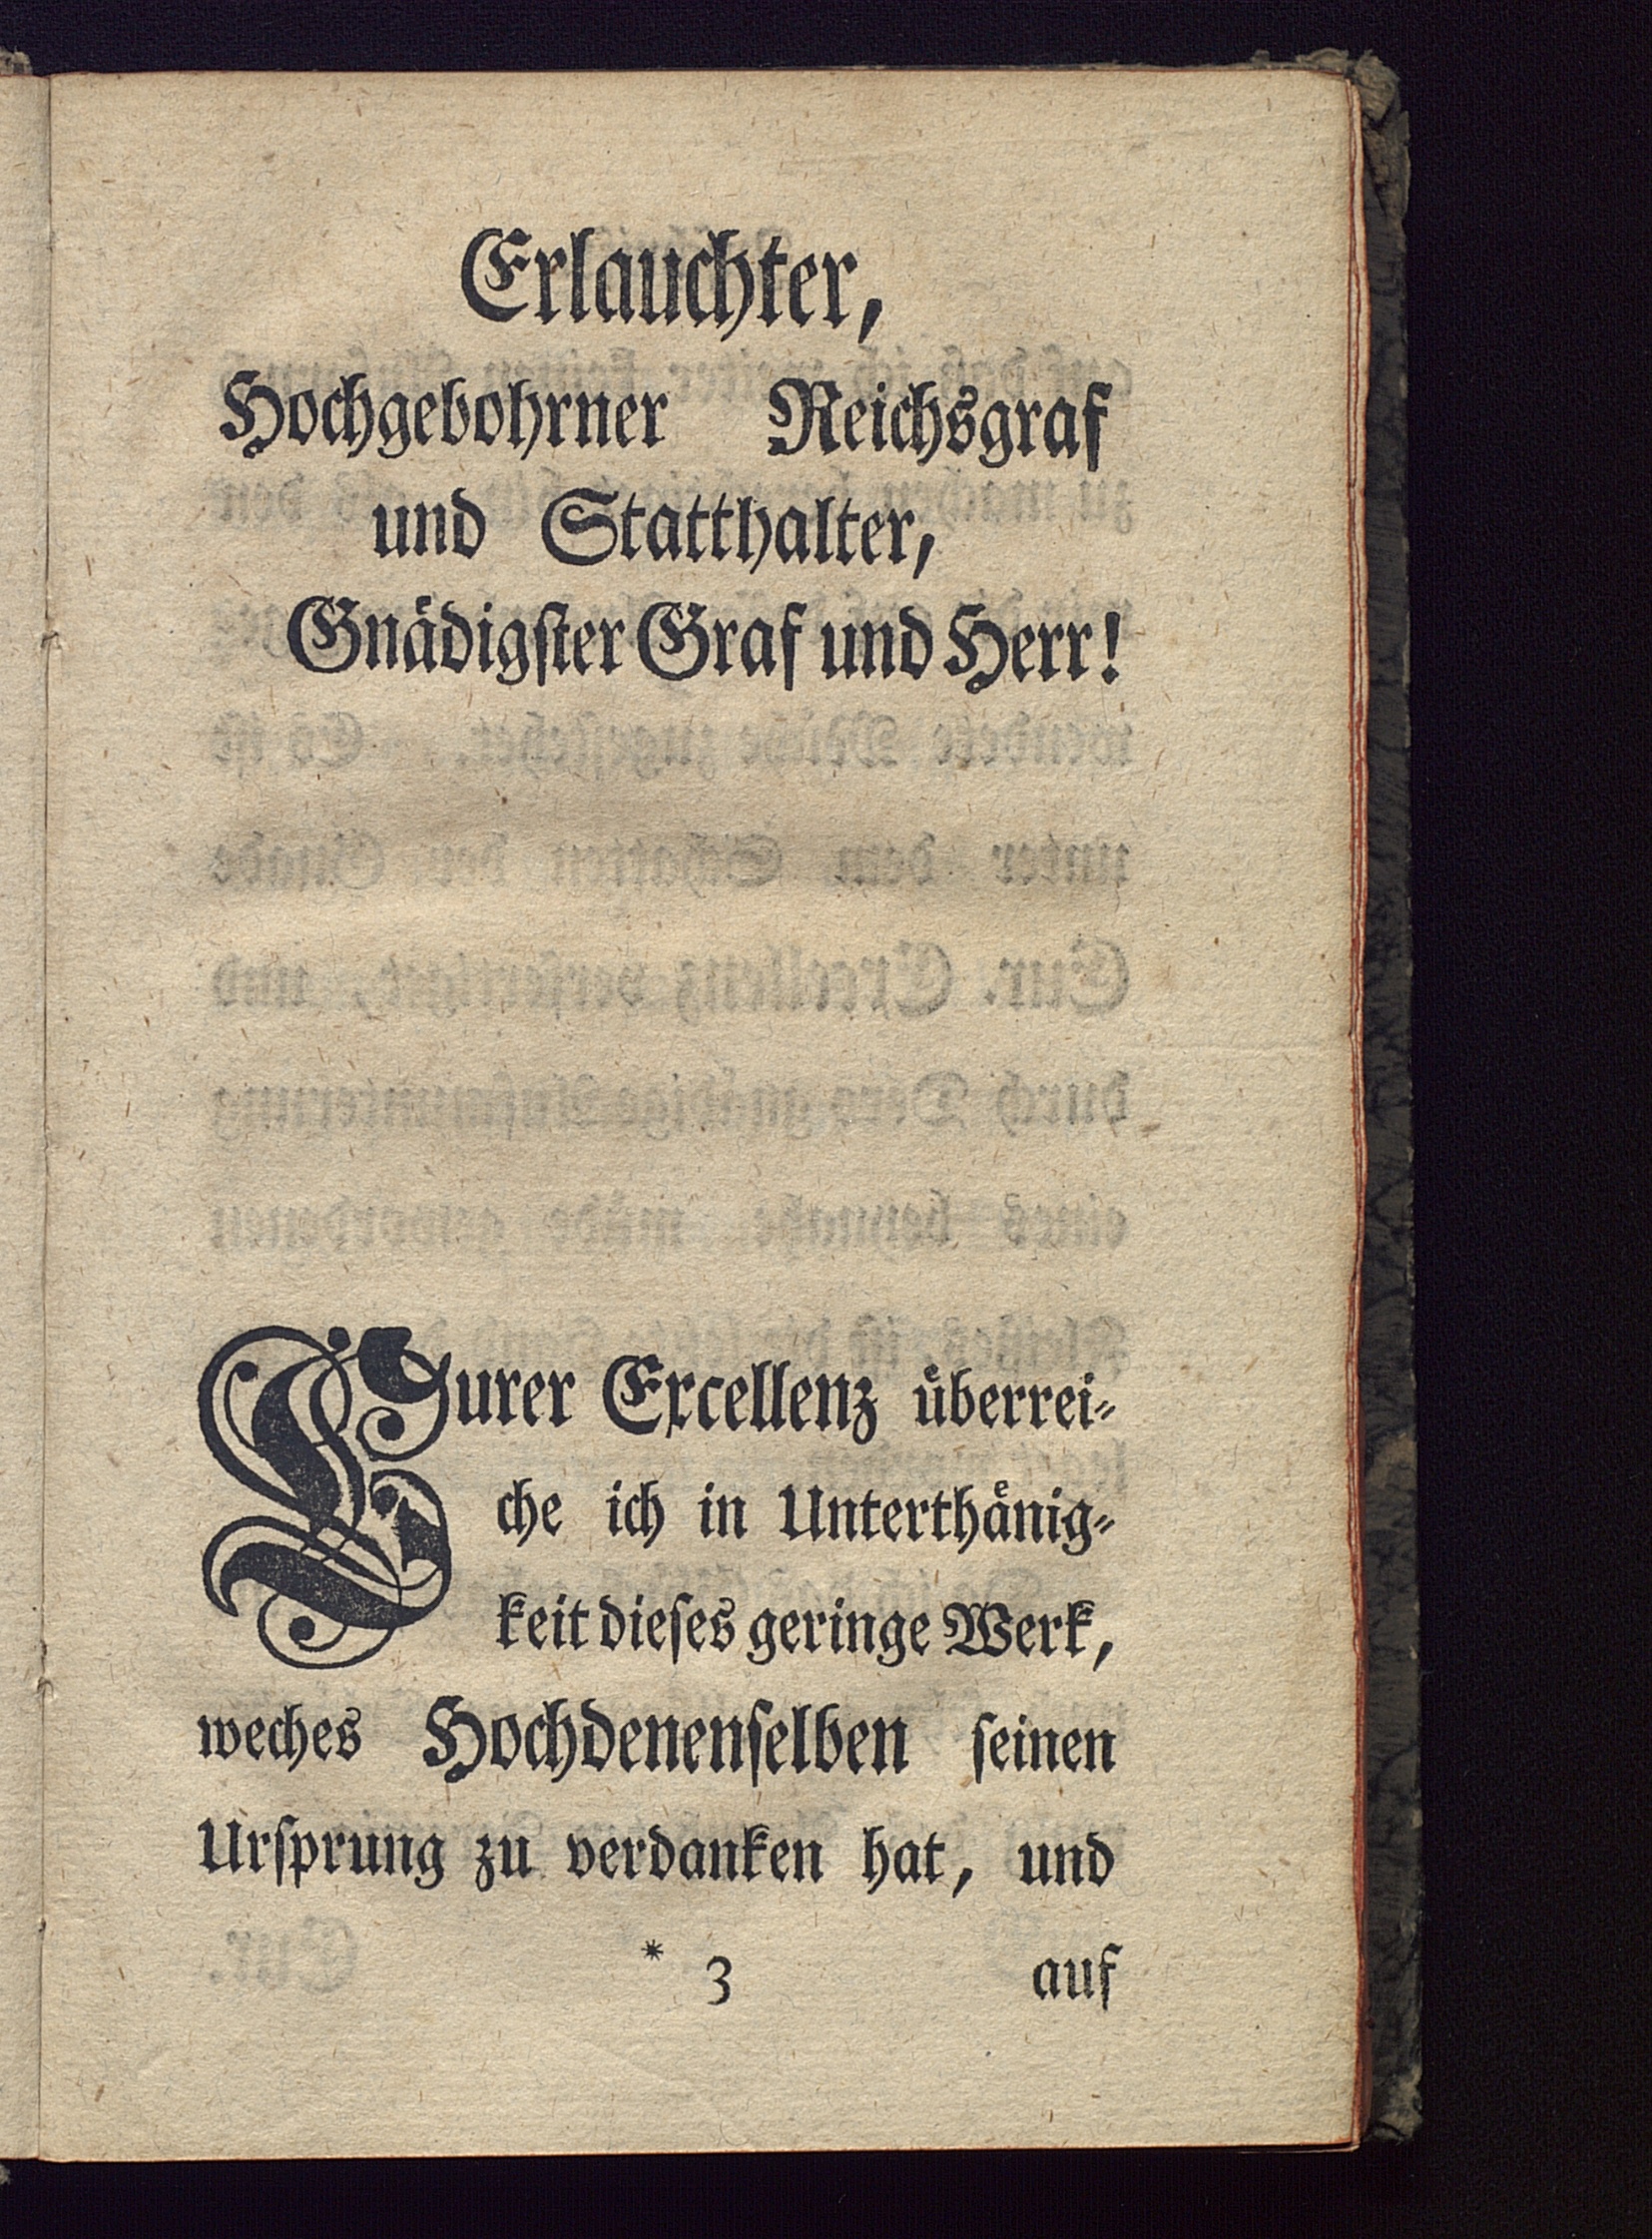 Erlauchter,
Hochgebohrner Reichsgraf
und Statthalter,
Gnädigſter Graf und Herr!
Eurer Excellenz überrei⸗
che ich in Unterthänig⸗
keit dieſes geringe Werk,
weches Hochdenenſelben ſeinen
Urſprung zu verdanken hat, und
* 3 auf